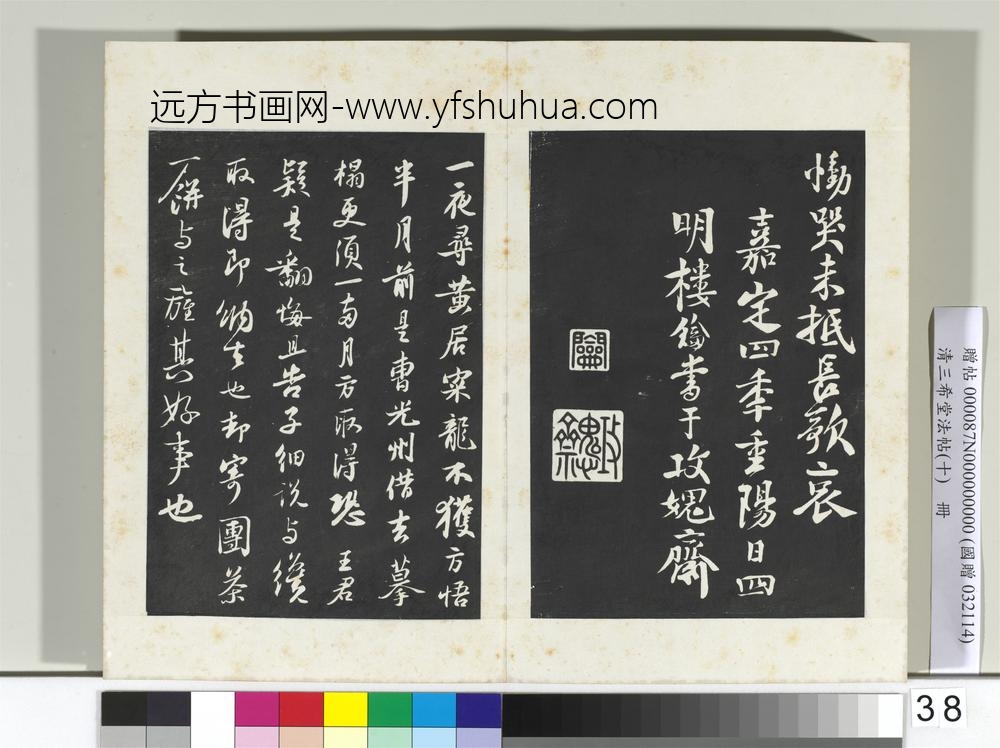 远方书画网-www.yfshuhua.com
慟哭未抵長歌哀
嘉定四季重陽日四
明樓鑰書于攻媿齋
攻媿齋
一夜尋黃居寀龍不獲方悟
半月前是曹光州借去摹
榻更須一兩月方取得恐王君
疑是翻悔且告子細說与纔
取得即納去也却寄團茶
一餅与之旌其好事也
贈帖 000087N000000000 (國贈 032114)
清三希堂法帖(十) 冊
38